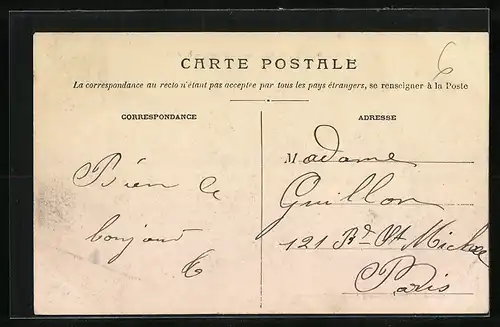 6
CARTE POSTALE
La correspondance au recto n'étant pas acceptée par tous les pays étrangers, se renseigner à la Poste
CORRESPONDANCE
Bien le
bonjour
ADRESSE
Madame
Guillon
121 Bd St Michel
Paris